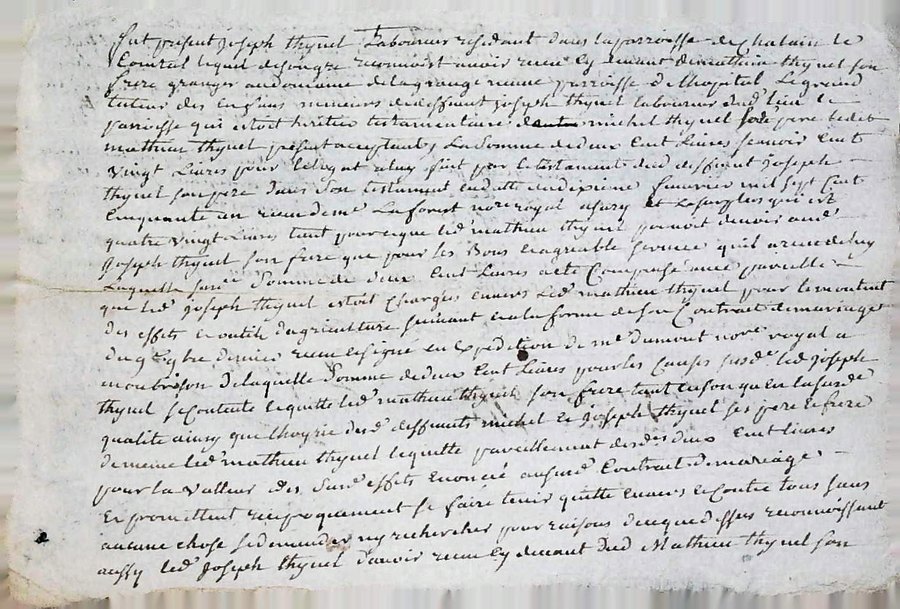 fut présent Joseph thynel Laboureur résidant dans la parroisse de Chalain le
Comtal lequel de son gré reconnoist avoir receu Cy devant de mathieu thynel son
frere granger au domaine de la grange neuve parroisse de l'hopital Le grand
tuteur des Enfans mineurs de deffunt Joseph thynel laboureur dud. lieu et
parroisse qui estoit heritier testamentaire de michel thynel pere led.
mathieu thynel present acceptant, La Somme de deux Cent Livres scavoir Cent
vingt Livres pour le legat a luy fait par le testament dud. deffunt Joseph
thynel son pere dans Son testament en datte du dixieme feuvrier mil sept Cent
Cinquante un receu de me. Laforest nore. royal a sury et Le surplus qui est
quatre vingt Livres tant pour ce que led. mathieu thynel pouvoit devoir aud.
Joseph thynel son frere que pour les Bons et agreable services qu'il a receu de luy
Laquelle susd. Somme de deux Cent Livres a este Compensé avec pareille
que led. Joseph thynel estoit Chargés envers Led. mathieu thynel pour le montant
des effets et outils d'agriculture suivant et a la forme de son Contrat de mariage
du dernier receu et signé en Expedition de me. dumont nore. royal a
montbrison de laquelle Somme de deux Cent Livres pour les Causes susd. led. Joseph
thynel se Contente et quitte led. mathieu thynel son frere tant en son que en lasusde.
qualité ainsy que l'hoyrie desd. deffunts michel et Joseph thynel ses pere et frere
de meme led. mathieu thynel le quitte pareillement desdes. deux Cent Livres
pour la valleur des susd. effets Enoncié au susd. Contrat de mariage
Et promettent reciproquement se faire tenir quitte envers et Contre tous sans
aucune chose se demander ny rechercher pour raisons de ce que dessus reconnoissant
aussy led. Joseph thynel d'avoir receu Cy devant dud. Mathieu thynel son